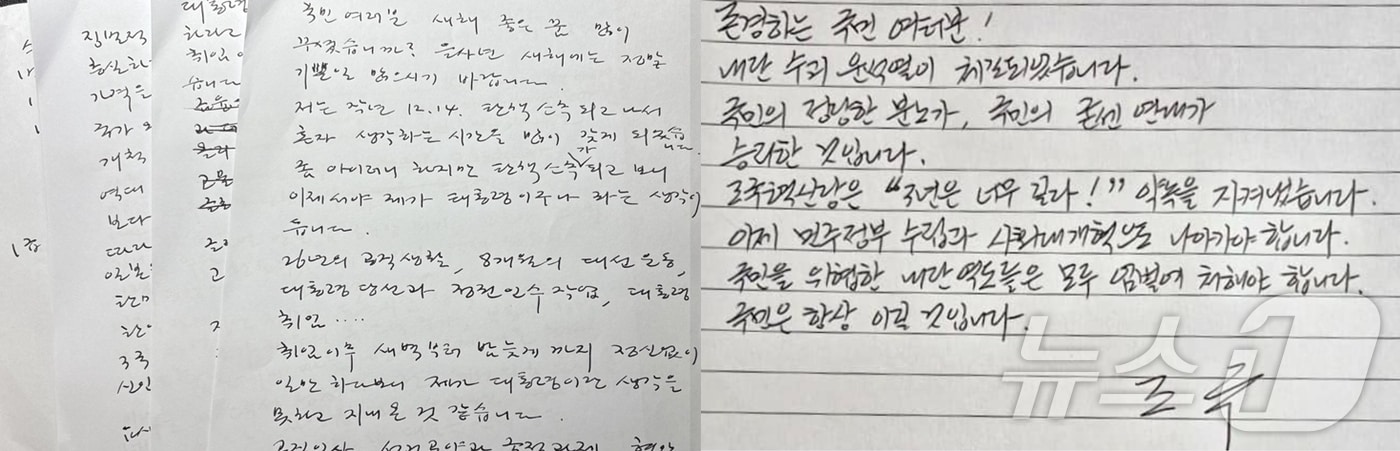 대통령
국민 여러분 새해 좋은 꿈 많이
꾸셨습니까? 을사년 새해에는 정말
기쁜일 많으시기 바랍니다.
저는 작년 12.14. 탄핵소추 되고 나서
혼자 생각하는 시간을 많이 갖게 되었습니다.
좀 아이러니 하지만 탄핵소추가 되고 보니
이제서야 제가 대통령이구나 하는 생각이
듭니다.
26년의 공직생활, 8개월의 대선 운동,
대통령 당선과 정권 인수 작업, 대통령
취임....
취임이후 새벽부터 밤늦게 까지 정신없이
일만 하다보니 제가 대통령이란 생각을
못하고 지내온 것 같습니다.
존경하는 국민 여러분!
내란 수괴 윤석열이 체포되었습니다.
국민의 정당한 분노가, 국민의 굳센 연대가
승리한 것입니다.
조국혁신당은 "3년은 너무 길다!" 약속을 지켜냈습니다.
이제 민주정부 수립과 사회대개혁으로 나아가야 합니다.
국민을 위협한 내란 역도들은 모두 엄벌에 처해야 합니다.
국민은 항상 이길 것입니다.
조국
뉴스1